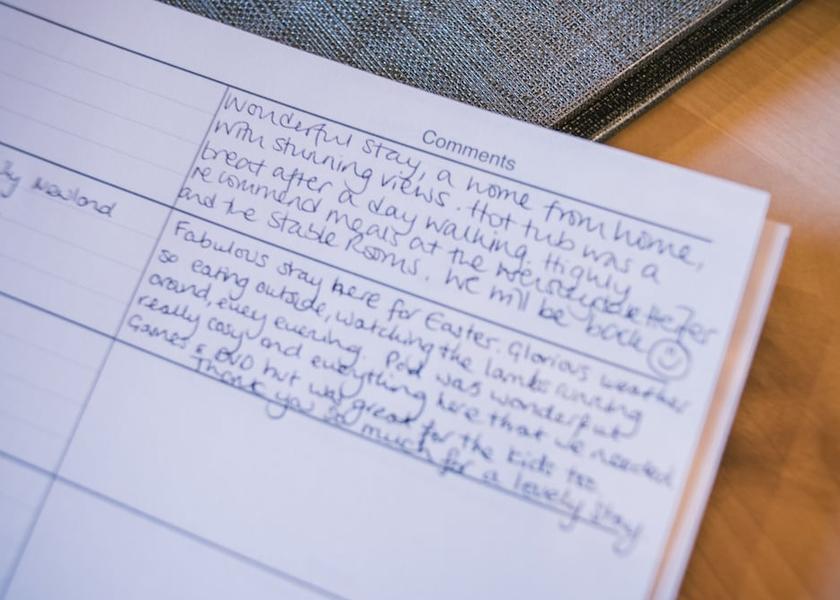 Comments
Wonderful stay, a home from home,
with stunning views. Hot tub was a
treat after a day walking. Highly
recommend meals at the
and the Stable Rooms. We will be back
ky Newland
Fabulous stay here for Easter. Glorious weather
so eating outside, watching the lambs running
around, every evening. Pod was wonderful
really cosy and everything here that we needed
Games & DVD hut was great for the kids too.
Thank you so much for a lovely stay.